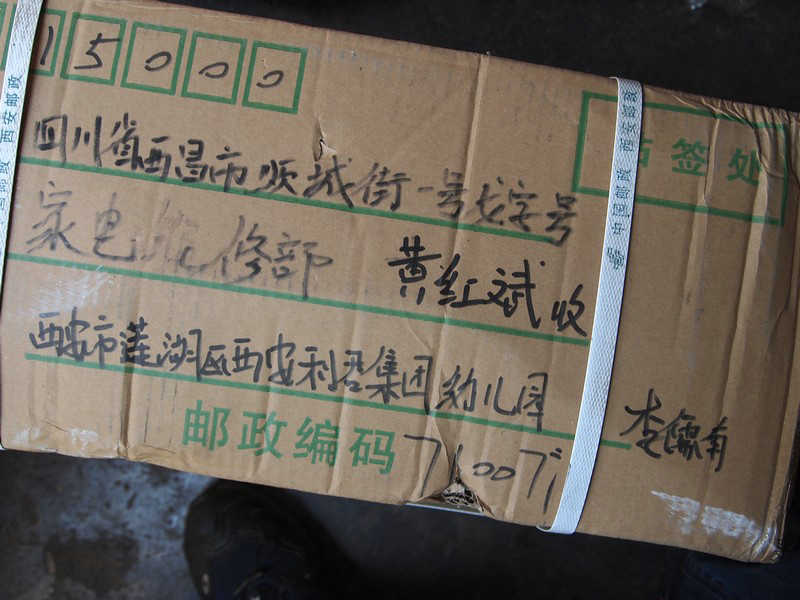 15000
签处
四川省西昌市顺城街一号戈字号
家电维修部 黄红斌收
西安市莲湖区西安利君集团幼儿园
李儒南
邮政编码 71007
中国邮政 西安邮政
西安邮政